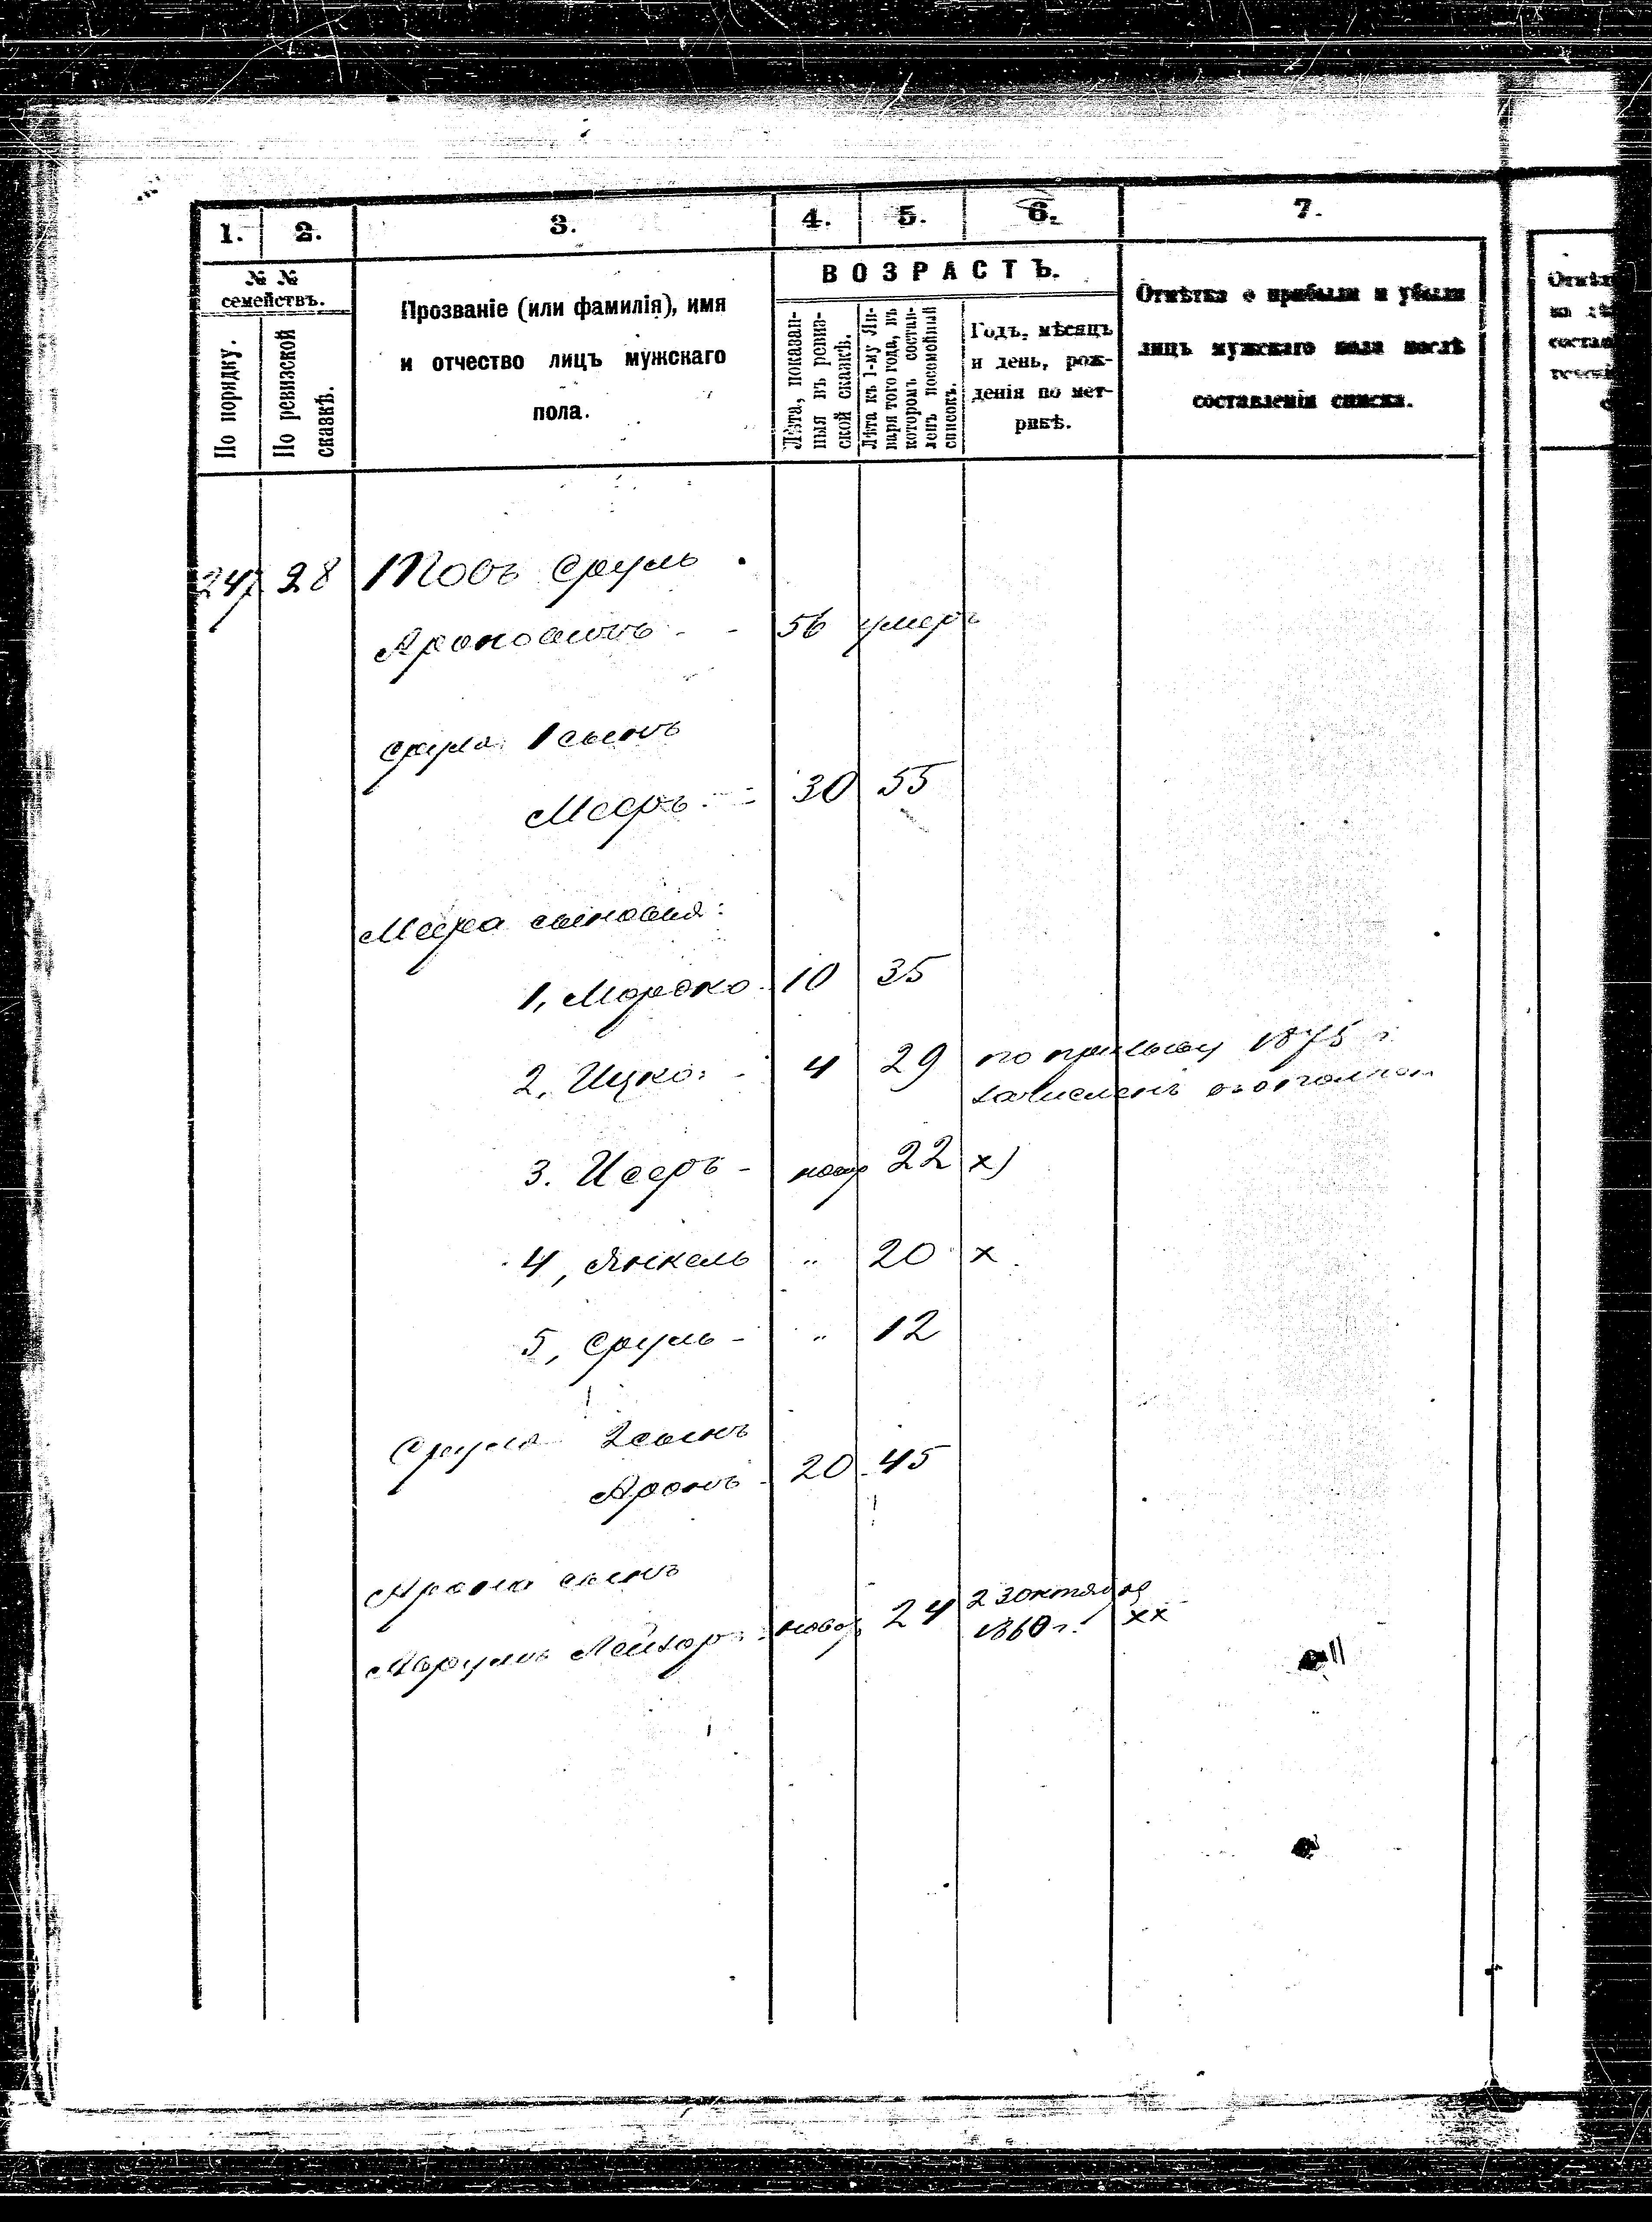 1. 2. 3. 4. 5. 6. 7.
№ №
семействъ.
По порядку.
По ревизской
сказкѣ.
Прозваніе (или фамилія), имя
и отчество лицъ мужскаго
пола.
ВОЗРАСТЪ.
Лѣта, показан-
ныя въ ревиз-
ской сказкѣ.
Лѣта къ 1-му Ян-
варя того года, въ
которомъ состав-
ленъ посемейный
списокъ.
Годъ, мѣсяцъ
и день, рож-
денія по мет-
рикѣ.
Отмѣтка о прибыли и убыли
лицъ мужскаго пола послѣ
составленія списка.
247 28 Товъ Сруль
Ароновичъ - - 56 умеръ
Сруля 1 сынъ
Мееръ - 30 55
Меера сыновья:
1, Мордко 10 35
2, Ицко - 4 29 по призыву 1875 г.
зачисленъ въ
3. Исеръ - новор 22 х)
4, Янкель " 20 х
5, Сруль - " 12
Сруля 2 сынъ
Аронъ - 20 45
Арона сынъ
Аврумъ Лейзоръ новор 24 23 октября
1860 г. хх